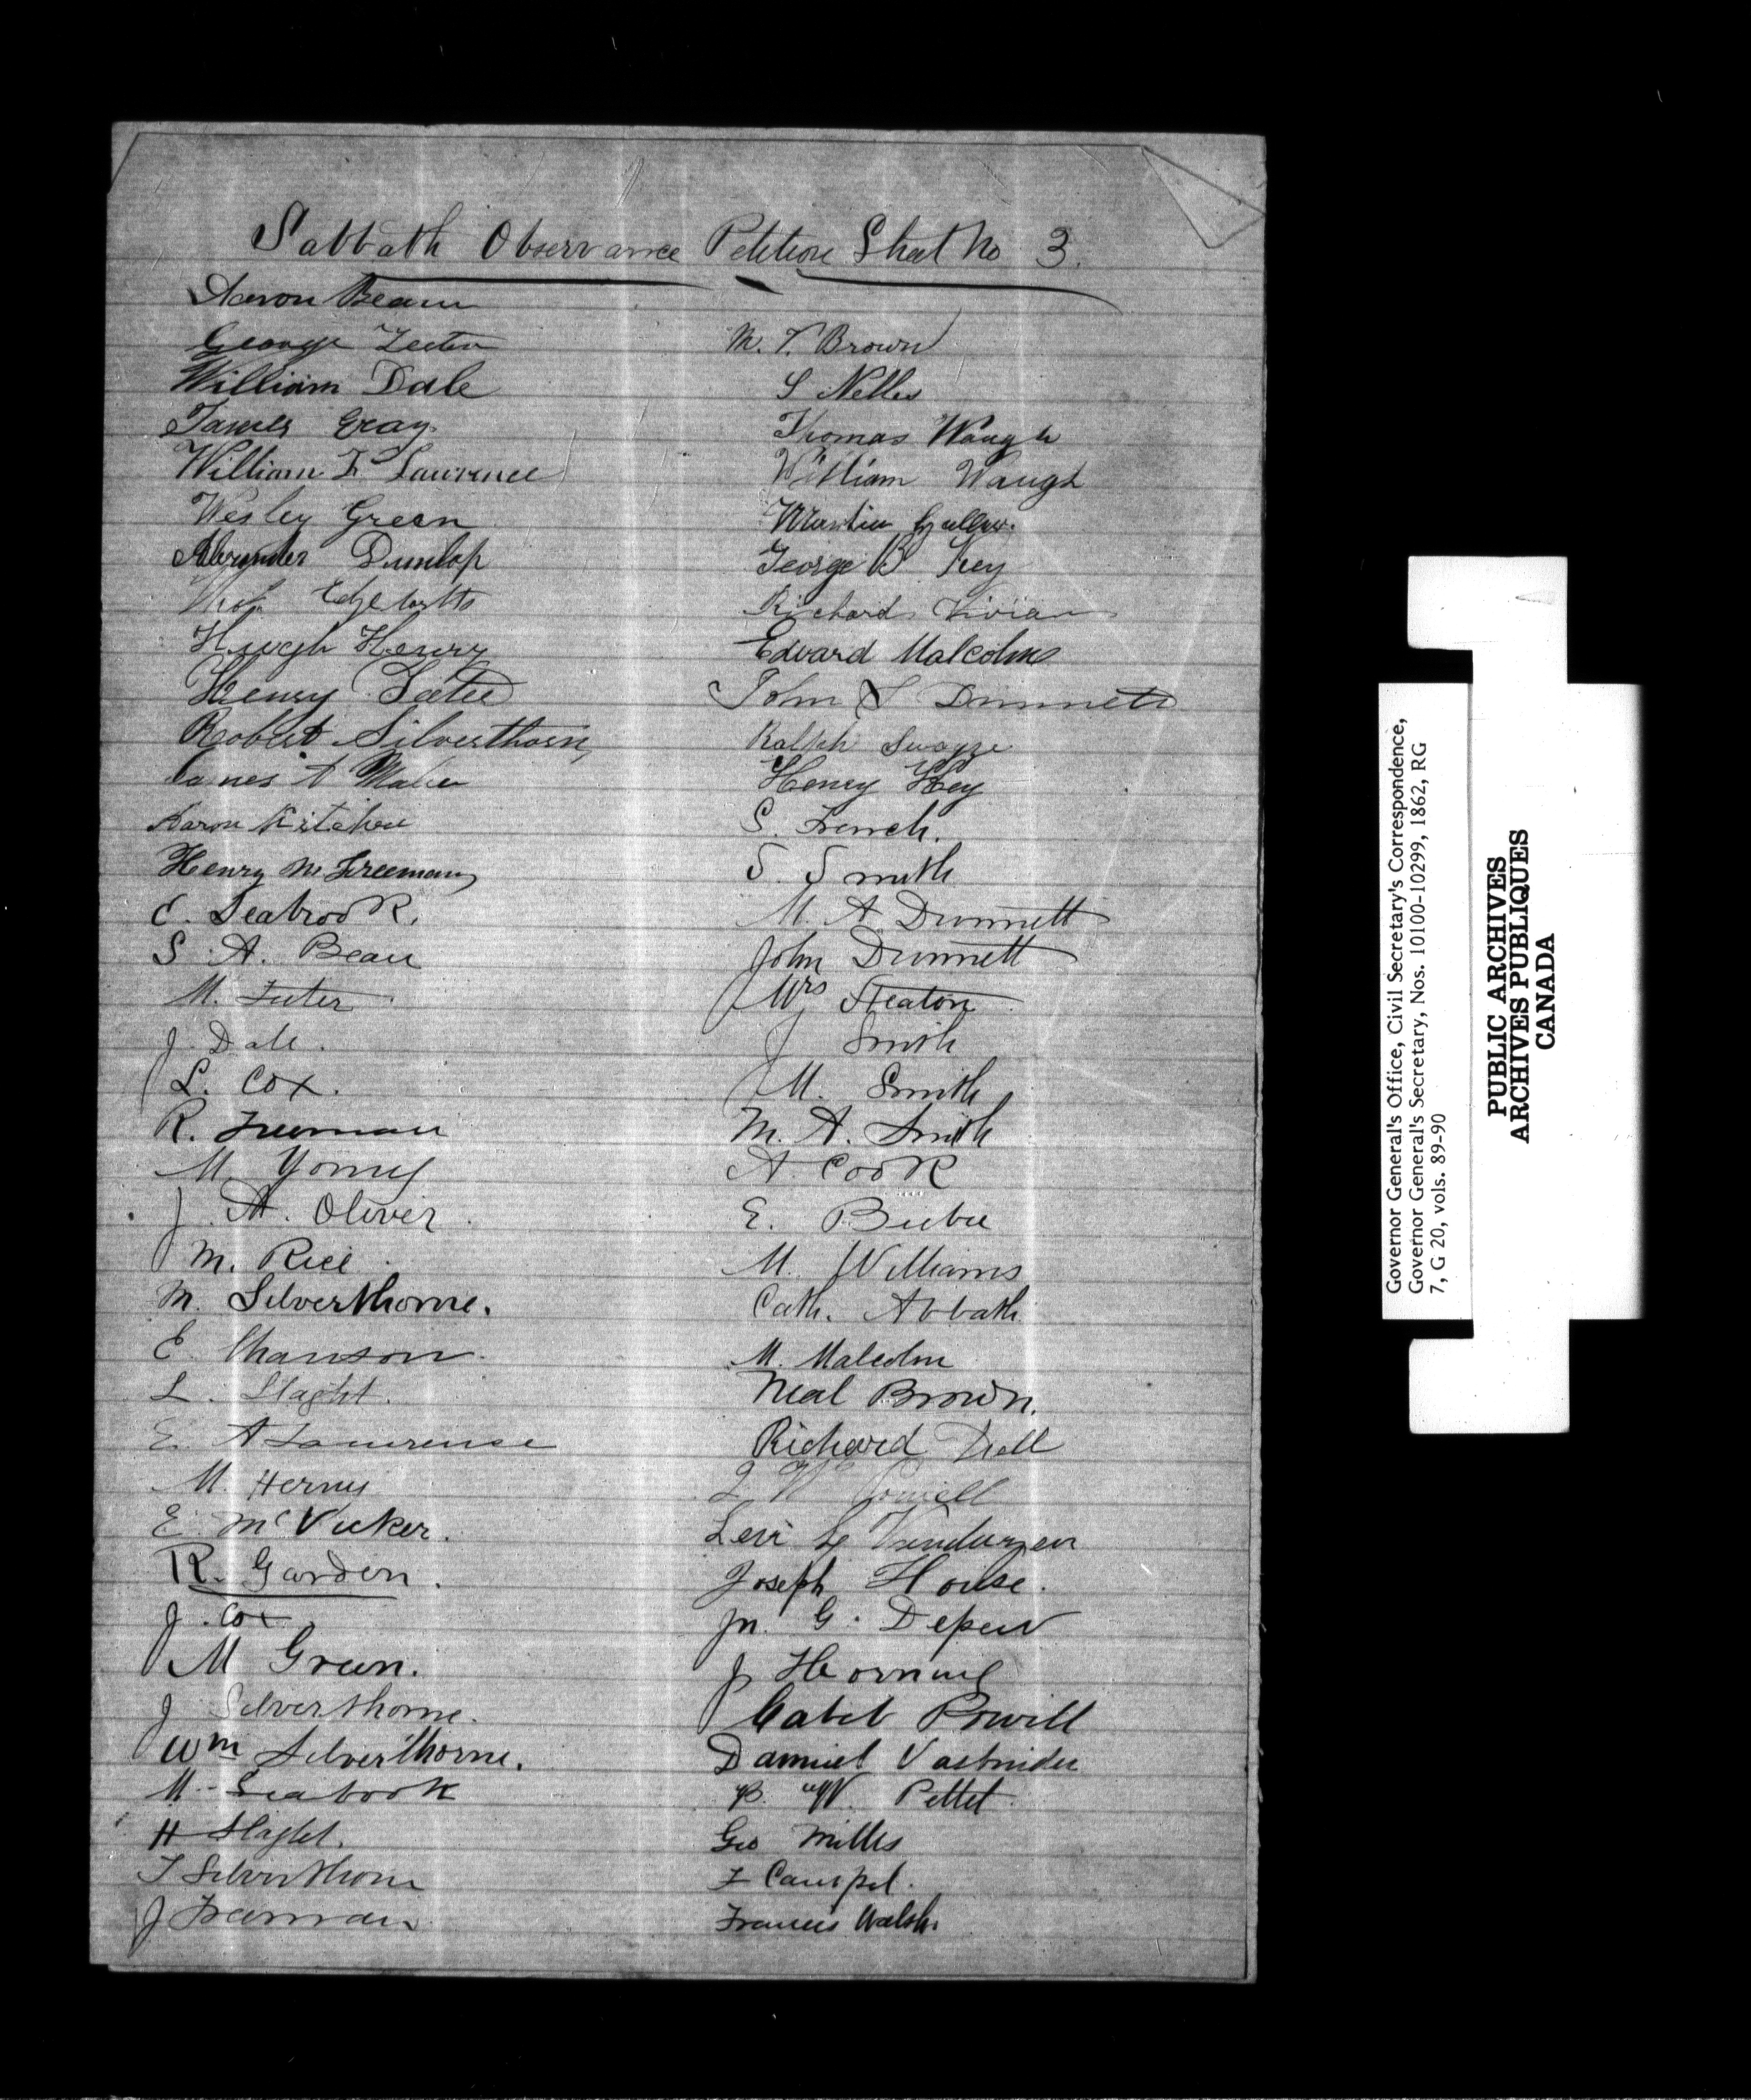 Sabbath Observance Petition Sheet No 3.
Aaron Beam
George
William Dale
James Gray
William F Lawrence
Wesley Green
Alexander Dunlop
Hugh Henry
Henry
Robert Silverthorn
James A
Aaron Kitchen
Henry M Freeman
C. Seabrook.
S. A. Beam
M. Teeter
J. Dale.
L. Cox.
R. Freeman
M Young
J. A. Oliver
M. Rice
M. Silverthorne.
E.
L. Slaght.
E. A Lawrense
M. Henry
E. McVicker.
R. Garden.
J. Cox
M Green.
J Silverthorne.
Wm Silverthorne.
M. Seabrook
H Slaght.
T Silverthorn
J Freeman
M. T. Brown
S Nelles
Thomas Waugh
William Waugh
Martin
George B Key
Richard Vivian
Edward Malcolm
John S Dunnett
Ralph Swayze
Henry Key
S. French.
S. Smith
M. A. Dunnett
John Dunnett
Mrs Heaton
J Smith
M. Smith
M. A. Smith
A Cook
E. Beebe
M. Williams
Cath. Abbath
M. Malcolm
Neal Brown.
Richard Dell
J. W. Powell
Levi Vanduzen
Joseph House.
Jn. G. Depew
J Horning
Caleb Powell
Damiel
B. W. Pettet
Geo Mills
Francis Walsh.
Governor General's Office, Civil Secretary's Correspondence,
Governor General's Secretary, Nos. 10100-10299, 1862, RG
7, G 20, vols. 89-90
PUBLIC ARCHIVES
ARCHIVES PUBLIQUES
CANADA